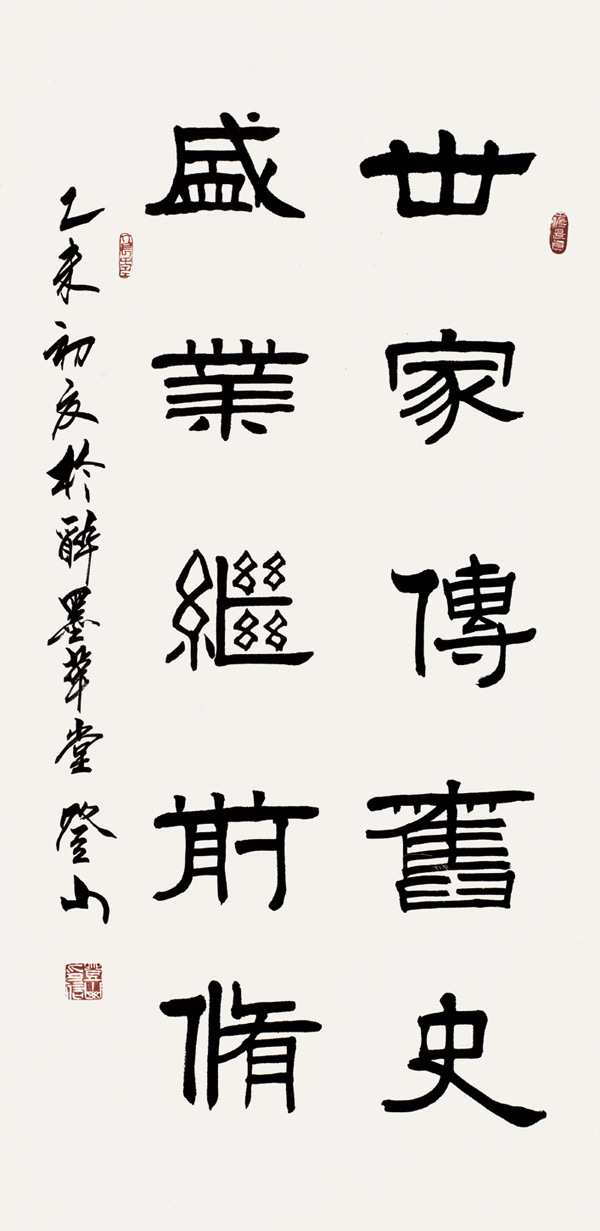 世家傳舊史
盛業繼前脩
乙未初夏於醉墨華堂 登山